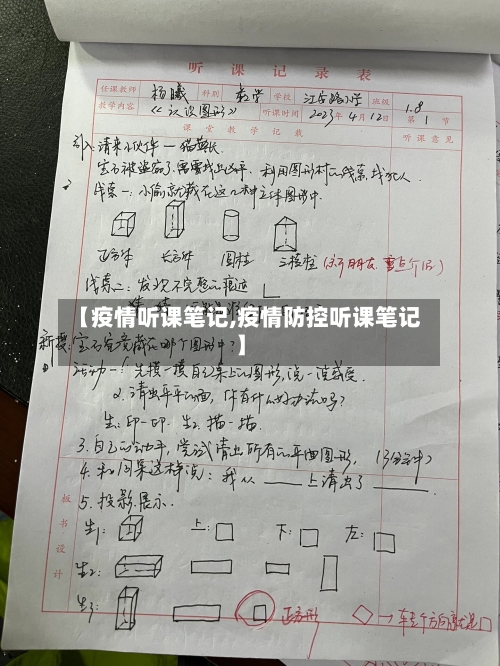 听课记录表
任课教师 杨曦 科别 数学 学校 江岸路小学 班级 1.8
教学内容 《认识图形》 听课时间 2023年4月12日 第1节
课堂教学记载 听课意见
引入：请来小伙伴 — 猫警长
线索一：小偷就藏在这几种立体图形中.
正方体 长方体 圆柱 三棱柱 (新朋友 重点介绍)
线索二：发现不完整的痕迹
【疫情听课笔记,疫情防控听课笔记】
新授：宝石究竟藏在哪个图形中？
活动一：1. 先摸一摸自己桌上的图形,说一说感受.
2. 请出平平的面，你有什么好办法吗？
生1：印一印. 生2：描一描.
3. 自己动动手，尝试请出所有的平面图形， (3分钟)
4. 和同桌这样说：我从 上请出了
5. 投影展示.
板书设计
生1： 上： 下： 左：
生2：
生3： 正方形